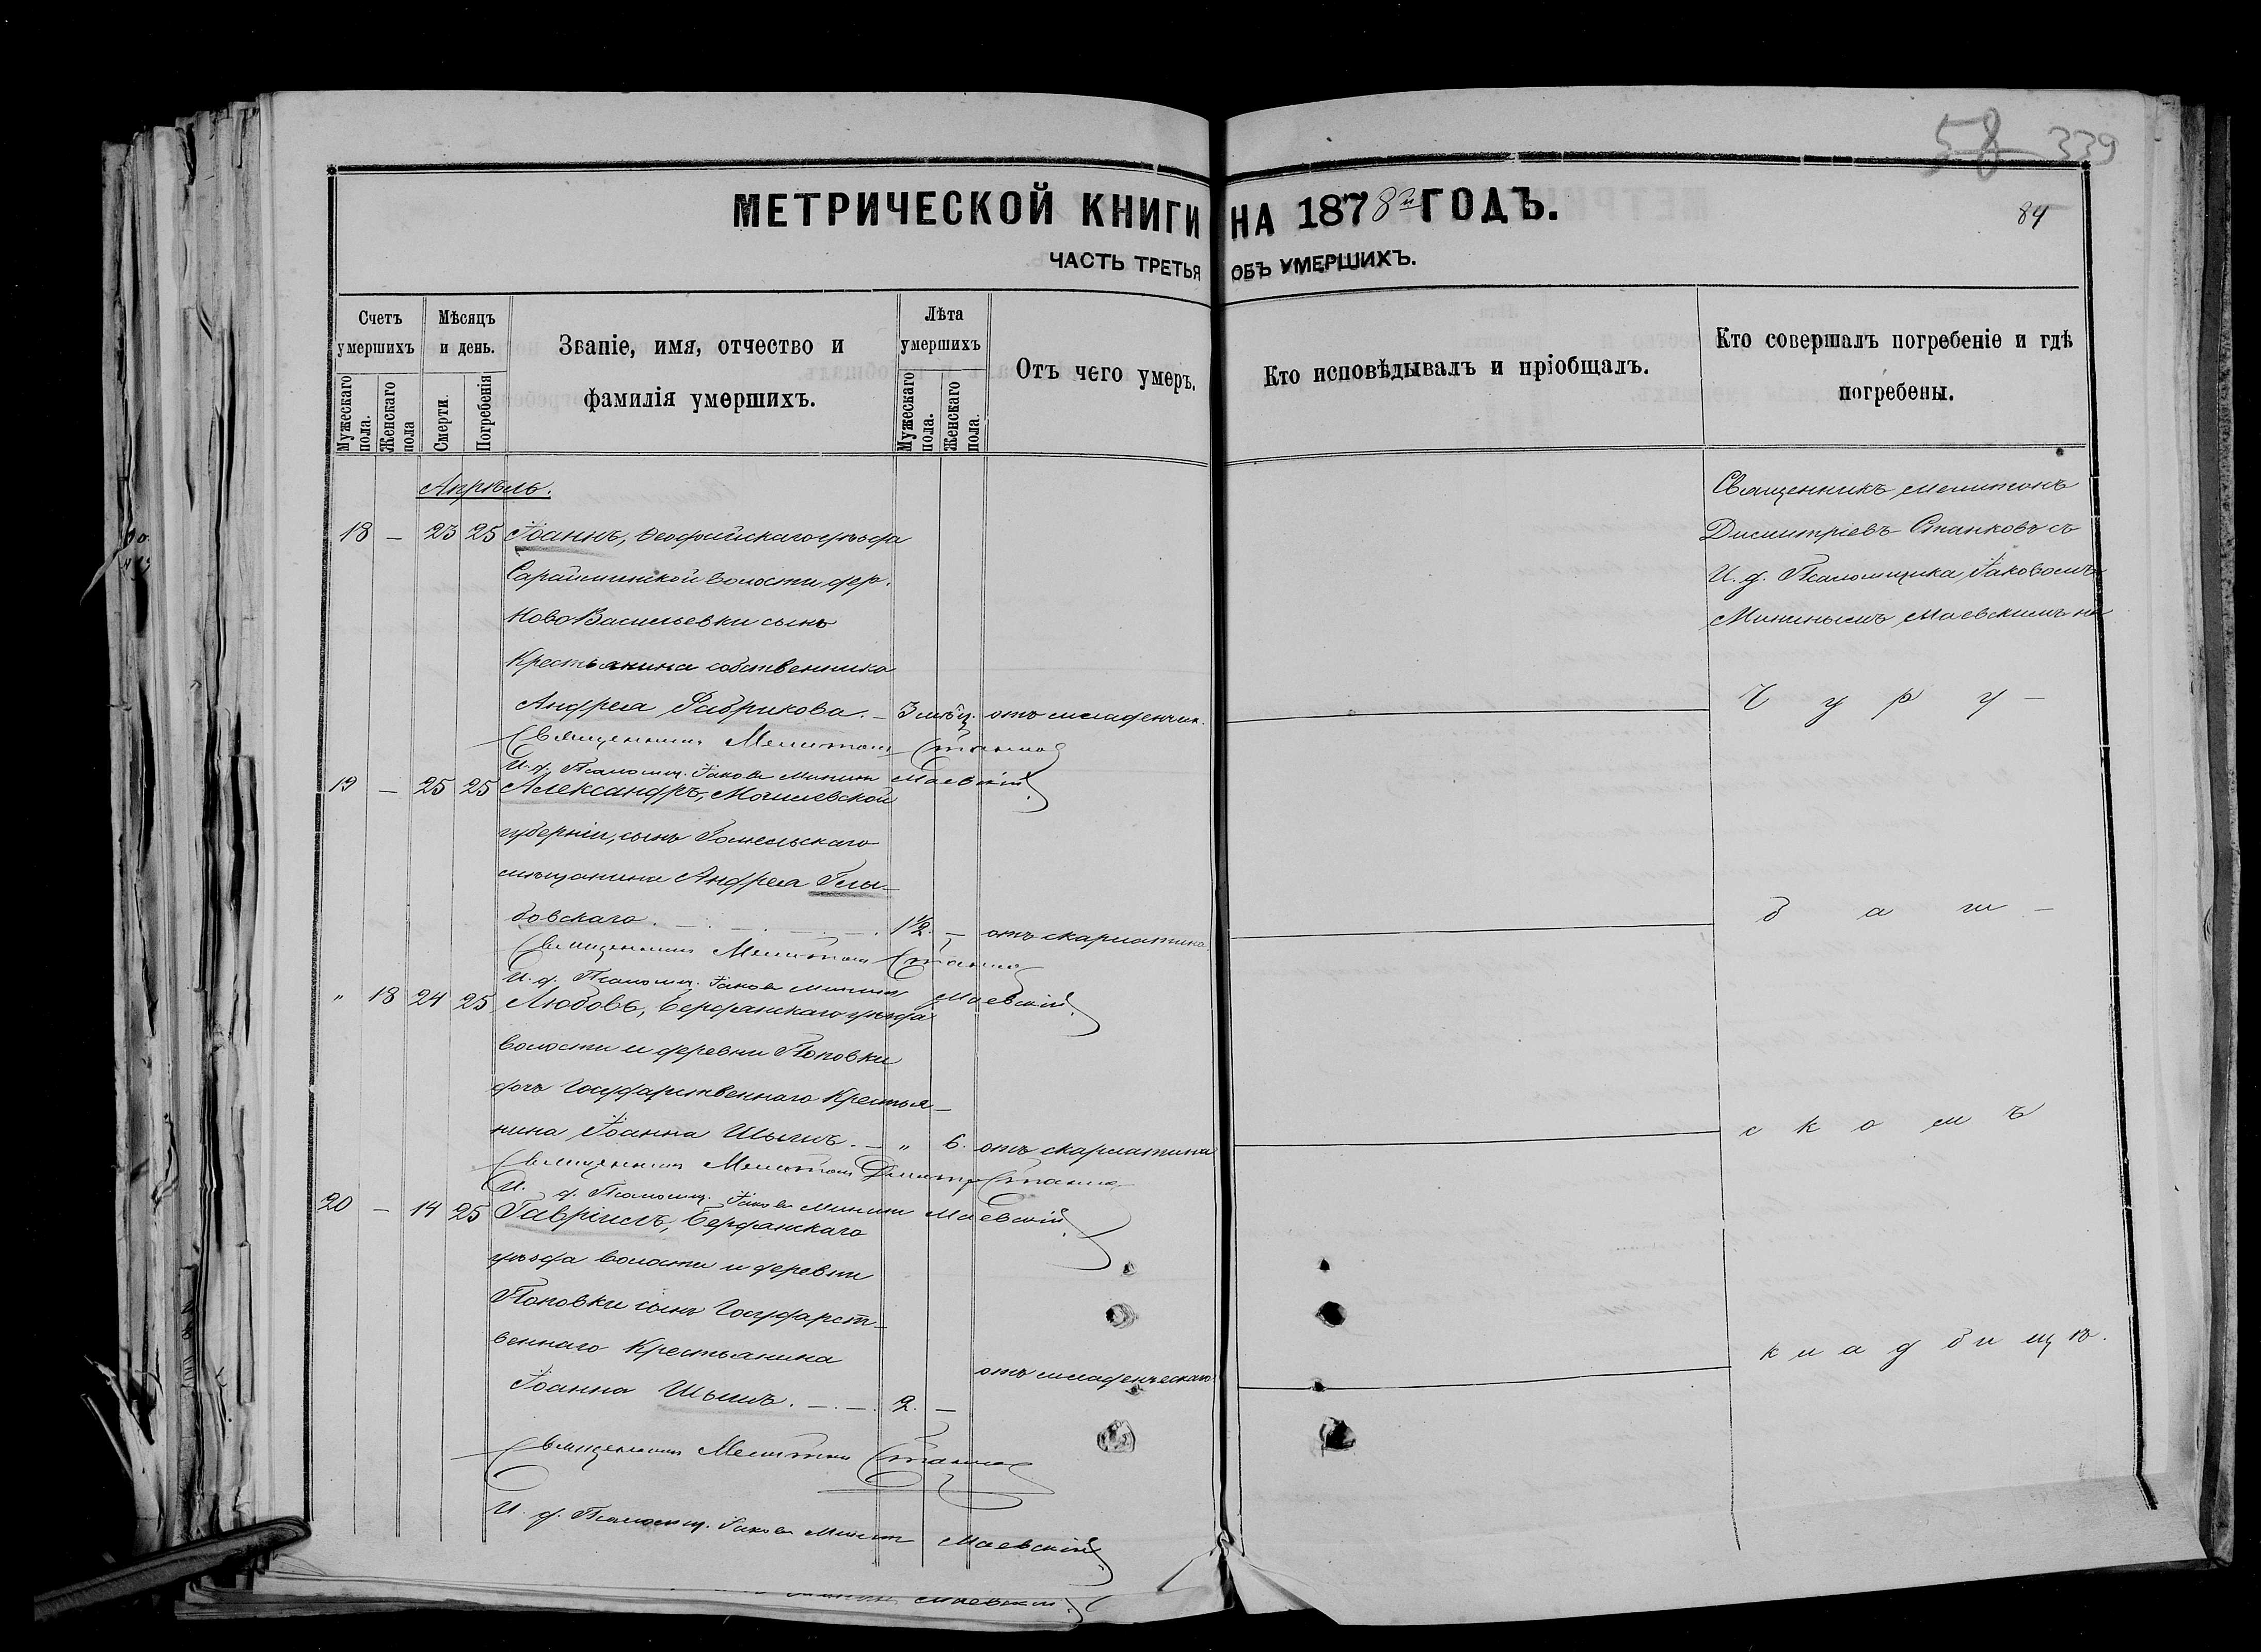 58 339
МЕТРИЧЕСКОЙ КНИГИ НА 1878й ГОДЪ.
84
ЧАСТЬ ТРЕТЬЯ ОБЪ УМЕРШИХЪ.
Счетъ умершихъ
Мужескаго пола.
Женскаго пола
Мѣсяцъ и день.
Смерти.
Погребенія
Званіе, имя, отчество и фамилія умершихъ.
Лѣта умершихъ
Мужескаго пола.
Женскаго пола.
Отъ чего умеръ.
Кто исповѣдывалъ и пріобщалъ.
Кто совершалъ погребеніе и гдѣ погребены.
Апрѣль.
18 — 23 25 Іоаннъ, Ѳеодосійскаго уѣзда
Сарайминской волости дер.
Ново Васильевки сынъ
Крестьянина собственника
Андрея Фабрикова. — 3 мѣц. отъ младенческ.
Священникъ Мелитонъ Станковъ
И. д. Псаломщ. Іаковъ Мининъ Маевскій
19 — 25 25 Александръ, Могилевской
губерніи, сынъ Гомельскаго
мѣщанина Андрея Глы-
бовскаго. 1½. — отъ скарлатина.
Священникъ Мелитонъ Станковъ
И. д. Псаломщ. Іаковъ Мининъ Маевскій
" 18 24 25 Любовь, Бердянскаго уѣзда
волости и деревни Поповки
дочь Государственнаго Крестья-
нина Іоанна Шышъ. — " 6. отъ скарлатина
Священникъ Мелитонъ Димитр. Станковъ
И. д. Псаломщ. Іаковъ Мининъ Маевскій
20 — 14 25 Гавріилъ, Бердянскаго
уѣзда волости и деревни
Поповки сынъ Государст-
веннаго Крестьянина
Іоанна Шышъ. — 2. — отъ младенческаго
Священникъ Мелитонъ Станковъ
И. д. Псаломщ. Іаковъ Мининъ Маевскій
Священникъ Мелитонъ
Димитріевъ Станковъ съ
И. д. Псаломщика Іаковомъ
Мининымъ Маевскимъ на
Ч у р у —
б а ш —
с к о м ъ
к л а д б и щ ѣ.